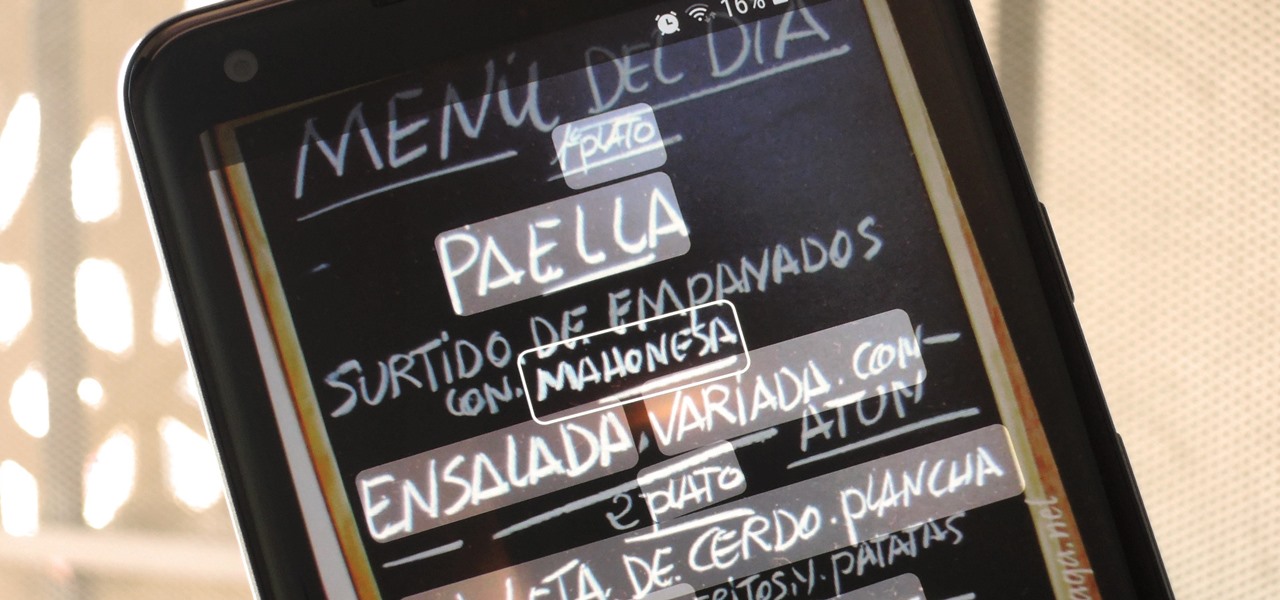 16%
MENÚ DEL DÍA
1º PLATO
PAELLA
SURTIDO. DE EMPANADOS
CON. MAHONESA
ENSALADA. VARIADA. CON-
ATÚN
2 PLATO
DE. CERDO. PLANCHA
Y. PATATAS